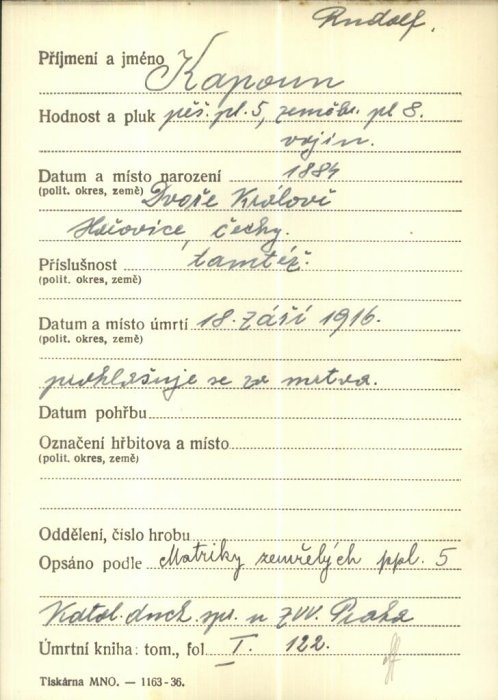 Rudolf.
Příjmení a jméno Kapoun
Hodnost a pluk pěš. pl. 5, zeměbr. pl 8.
vojín.
Datum a místo narození 1884
(polit. okres, země) Dvoře Králově
Hořovice, čechy.
Příslušnost tamtéž.
(polit. okres, země)
Datum a místo úmrtí 18. září 1916.
(polit. okres, země)
prohlašuje se za mrtva.
Datum pohřbu
Označení hřbitova a místo
(polit. okres, země)
Oddělení, číslo hrobu
Opsáno podle Matriky zemřelých ppl. 5
Katol. duch. spr. u ZVV. Praha
Úmrtní kniha: tom., fol I. 122.
Tiskárna MNO. — 1163-36.